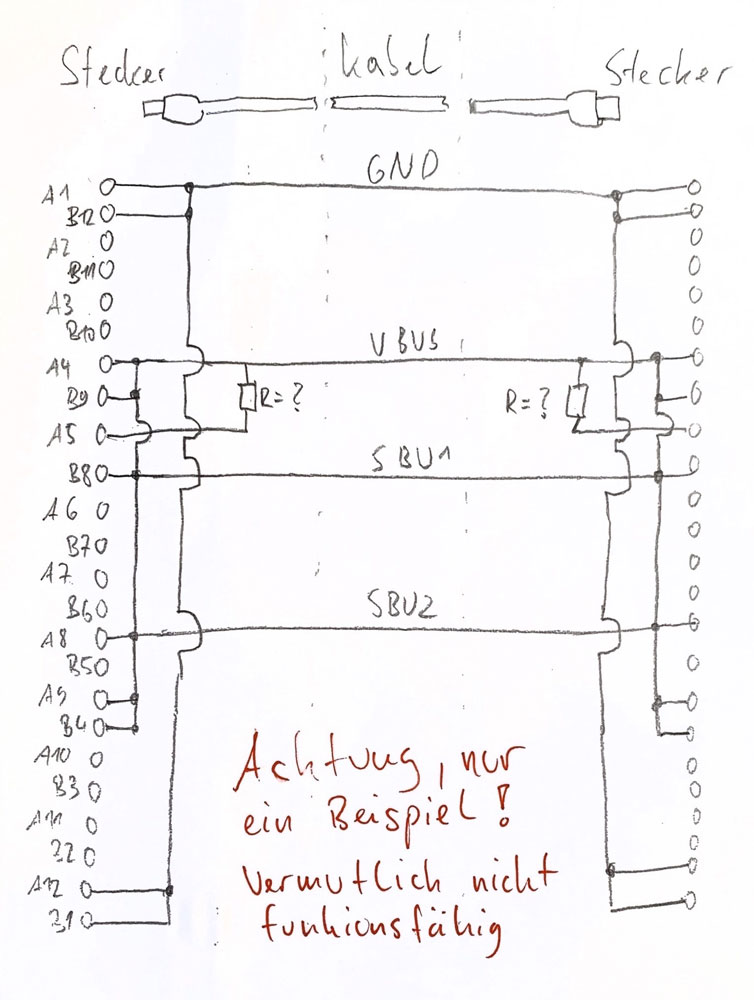 Stecker Kabel Stecker
GND
A1
B12
A2
B11
A3
B10
V BUS
A4
B9 R=? R=?
A5
SBU1
B8
A6
B7
A7
SBU2
B6
A8
B5
A9
B4
A10
B3
A11
B2
A12
B1
Achtung, nur
ein Beispiel!
Vermutlich nicht
funkionsfähig